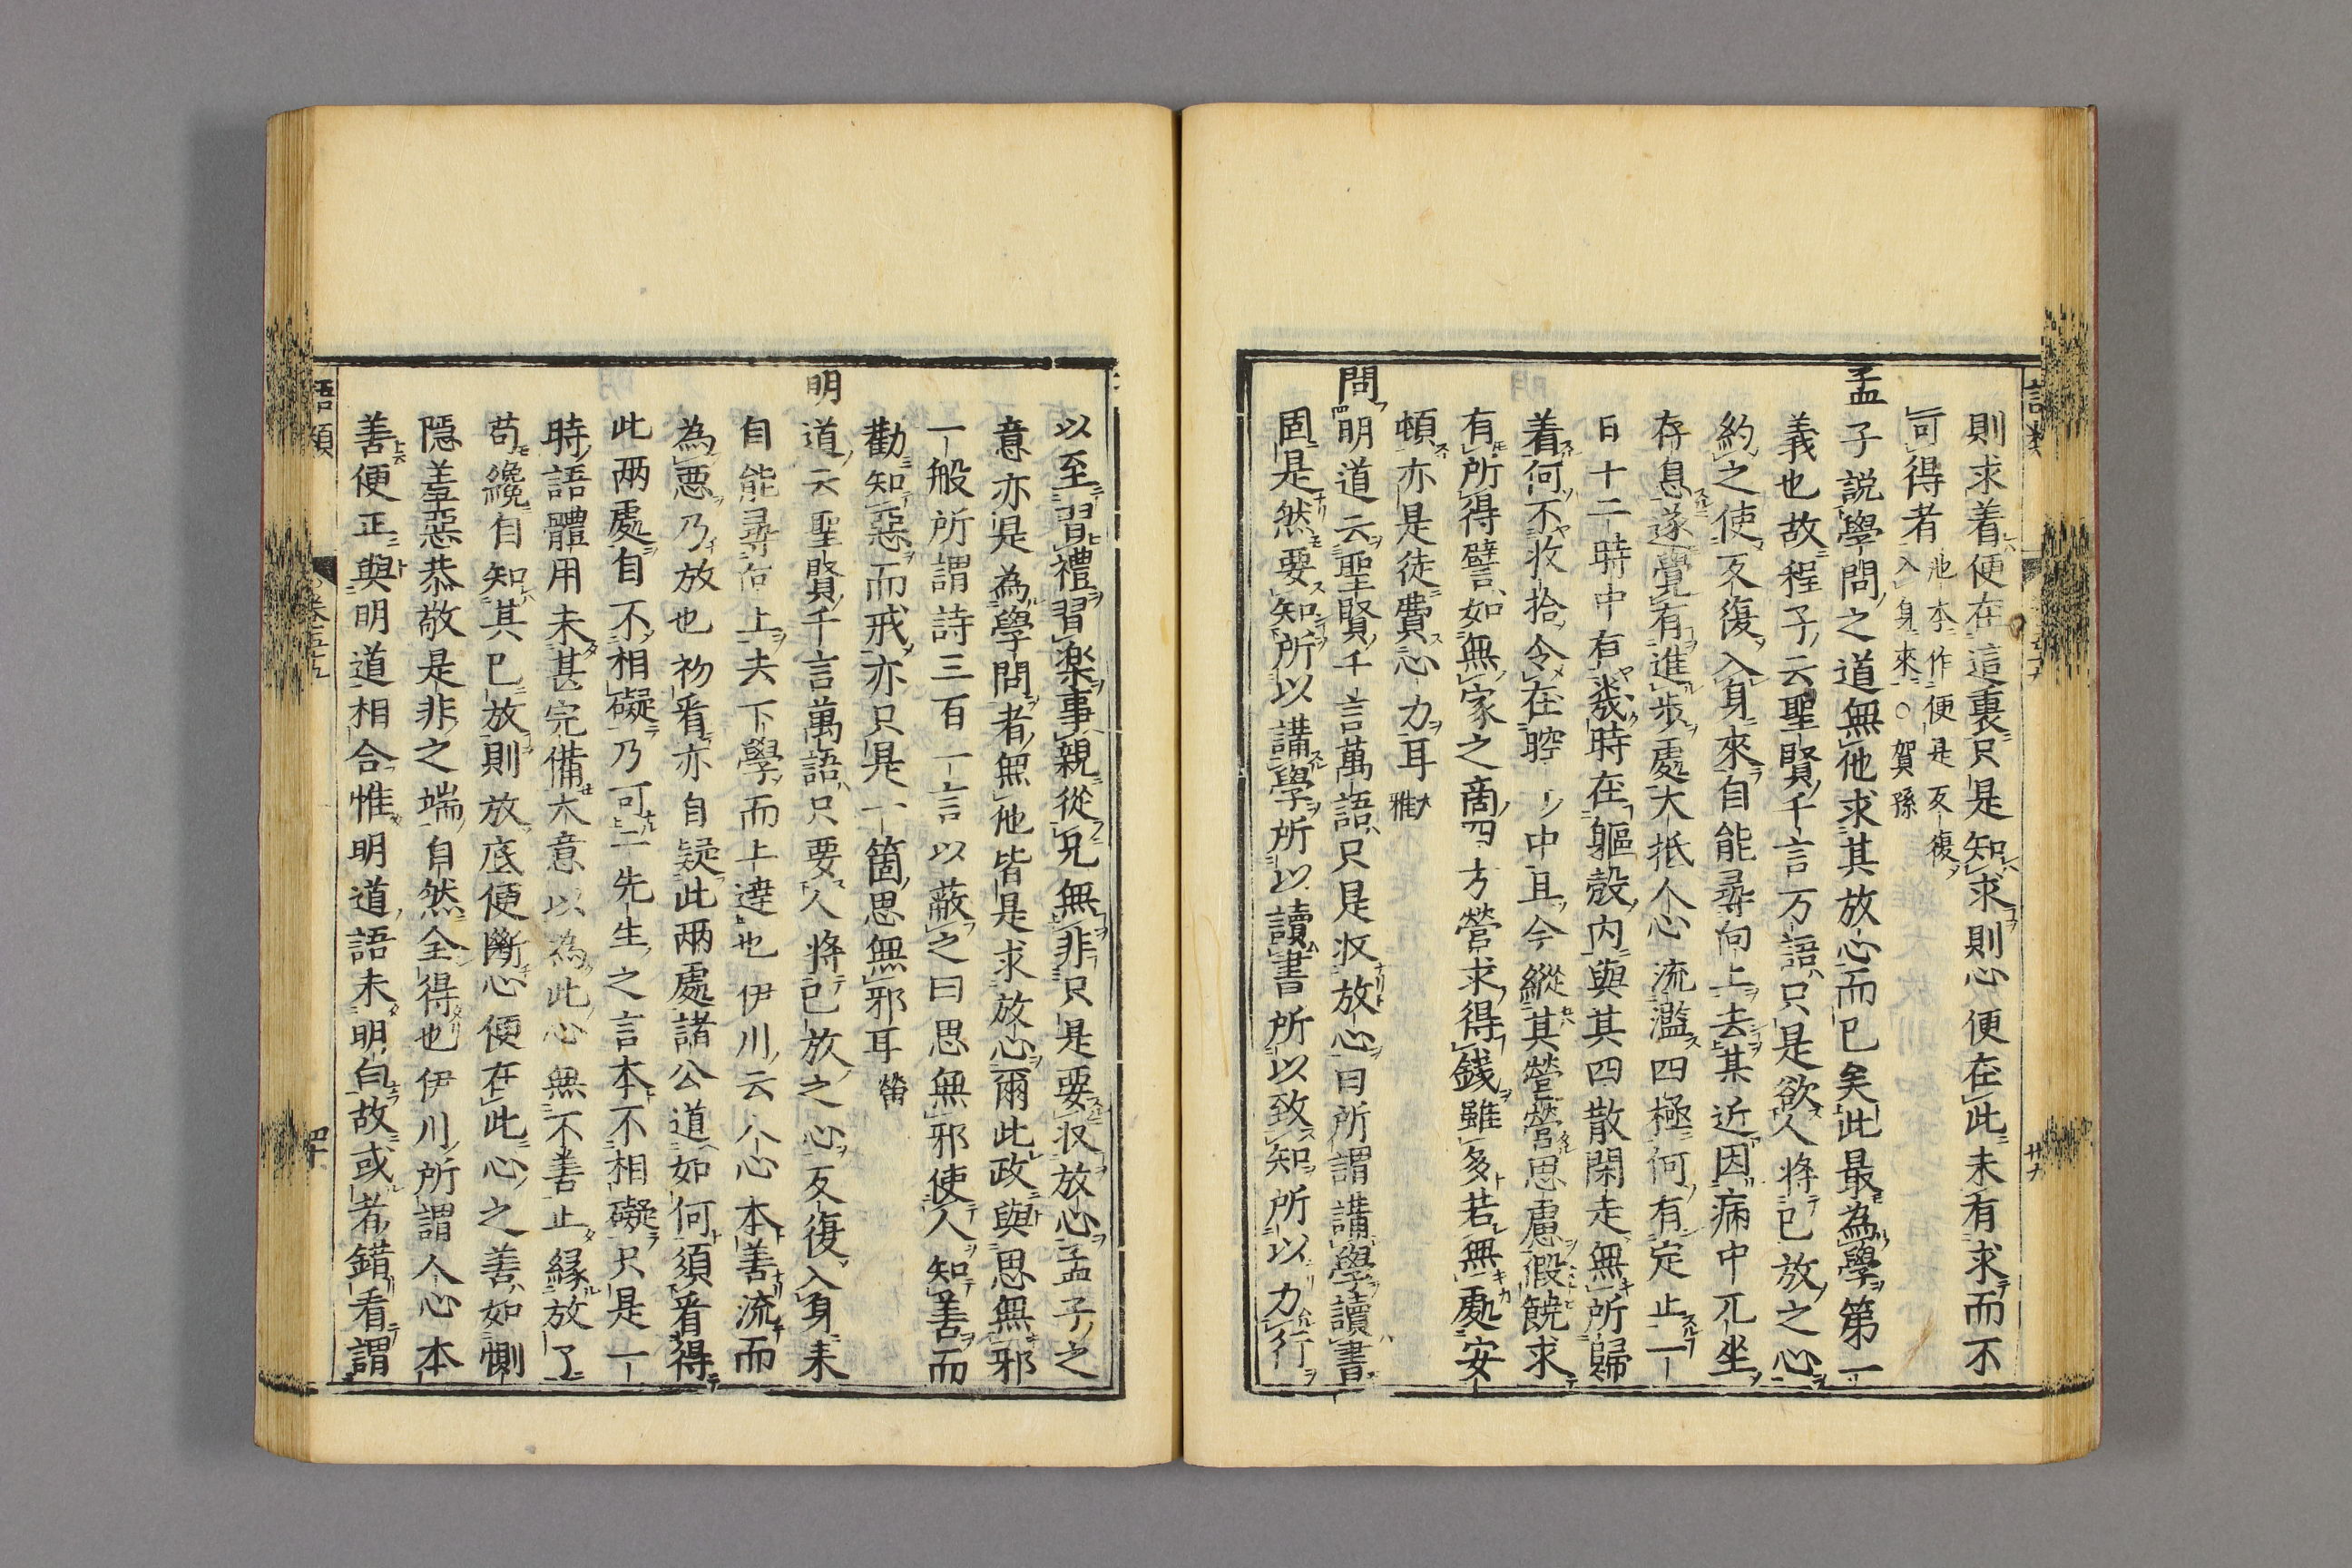 則求着便在這裏只是知求則心便在此未有求而不
可得者池本作便是反復入身來○賀孫
孟子説學問之道無他求其放心而已矣此最為學第一
義也故程子云聖賢千言万語只是欲人将已放之心
約之使反復入身來自能尋向上去某近因病中兀坐
存息遂覺有進歩處大抵人心流濫四極何有定止一
日十二時中有幾時在軀殼内與其四散閑走無所歸
着何不收拾令在腔リ中且今縱其營營思慮假饒求
有所得譬如無家之商四方營求得銭雖多若無處安
頓亦是徒費心力耳大雅
問明道云聖賢千言萬語只是收放心曰所謂講學讀書
固是然要知所以講學所以讀書所以致知所以力行
以至習禮習楽事親從兄無非只是要収放心孟子之
意亦是為學問者無他皆是求放心爾此政與思無邪
一般所謂詩三百一言以蔽之曰思無邪使人知善而
勸知惡而戒亦只是一箇思無邪耳
明道云聖賢千言萬語只要人将已放之心反復入身未
自能尋向上去下學而上達也伊川云人心本善流而
為悪乃放也初看亦自疑此兩處諸公道如何須看得
此两處自不相礙乃可二先生之言本不相礙只是一
時語體用未甚完備大意以為此心無不善止縁放了
苟纔自知其已放則放底便斷心便在此心之善如惻
隠羞惡恭敬是非之端自然全得也伊川所謂人心本
善便正與明道相合惟明道語未明白故或者錯看謂
語類
卷五十九
廿九